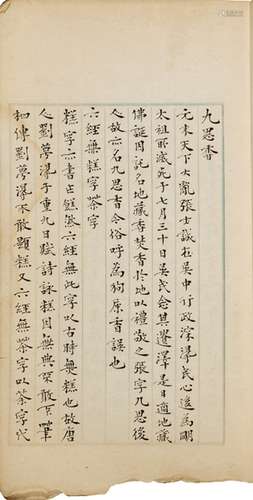 九思香
元末天下士亂張士誠在吳中行政深得民心迨為明
太祖所滅死于七月三十日吳民念其遺澤是日適地藏
佛誕因託名地藏香焚香於地以禮敬之張字九思後
人故亦名九思香今俗呼為狗屎香誤也
六經無糕字茶字
糕字六書正無六經無此字以古時無糕也故唐
人劉夢得于重九日賦詩詠糕因無典策敢下筆
相傳劉夢得不敢題糕又六經無茶字以荼字代